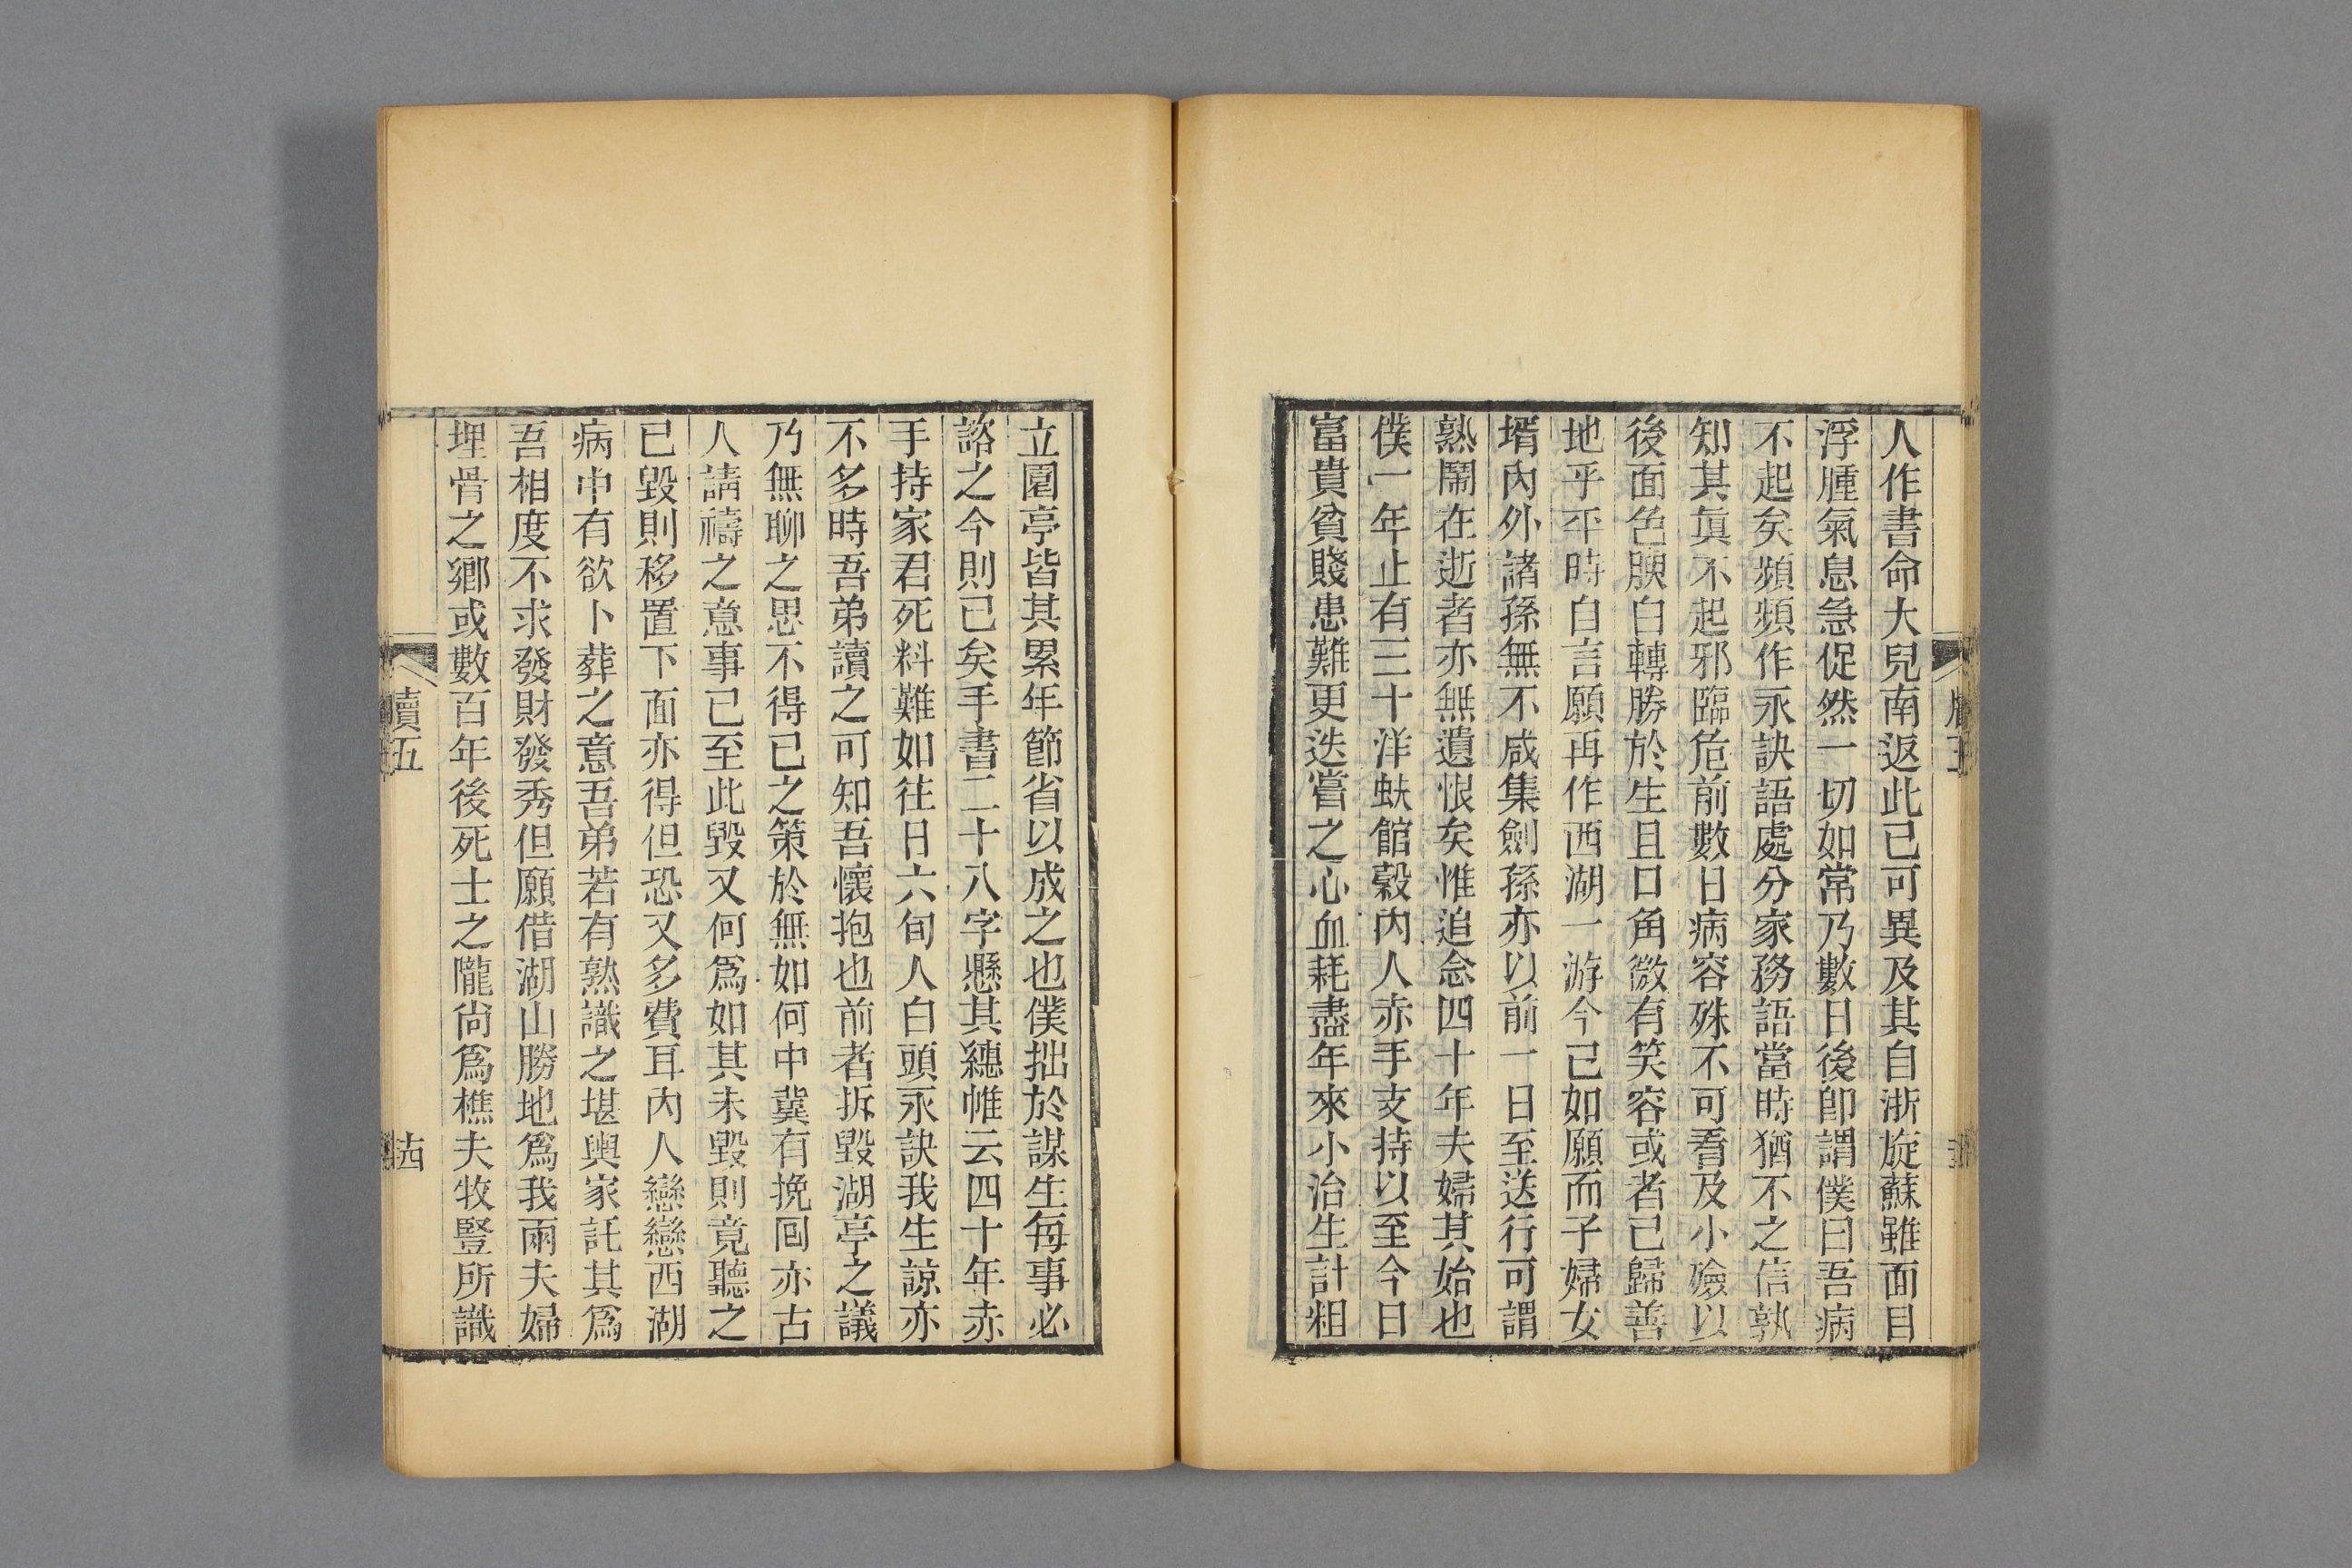 人作書命大兒南返此已可異及其自浙旋蘇雖面目
浮腫氣息急促然一切如常乃數日後卽謂僕曰吾病
不起矣頻頻作永訣語處分家務語當時猶不之信孰
知其眞不起邪臨危前數日病容殊不可看及小殮以
後面色腴白轉勝於生且口角微有笑容或者已歸善
地乎平時自言願再作西湖一游今已如願而子婦女
壻內外諸孫無不咸集劍孫亦以前一日至送行可謂
熟鬧在逝者亦無遺恨矣惟追念四十年夫婦其始也
僕一年止有三十洋蚨館穀內人赤手支持以至今日
富貴貧賤患難更迭嘗之心血耗盡年來小治生計粗
立園亭皆其累年節省以成之也僕拙於謀生每事必
諮之今則已矣手書二十八字懸其繐帷云四十年赤
手持家君死料難如往日六旬人白頭永訣我生諒亦
不多時吾弟讀之可知吾懷抱也前者拆毀湖亭之議
乃無聊之思不得已之策於無如何中冀有挽回亦古
人請禱之意事已至此毀又何爲如其未毀則竟聽之
已毀則移置下面亦得但恐又多費耳內人戀戀西湖
病中有欲卜葬之意吾弟若有熟識之堪輿家託其爲
吾相度不求發財發秀但願借湖山勝地爲我兩夫婦
埋骨之鄕或數百年後死士之隴尙爲樵夫牧豎所識
牘五